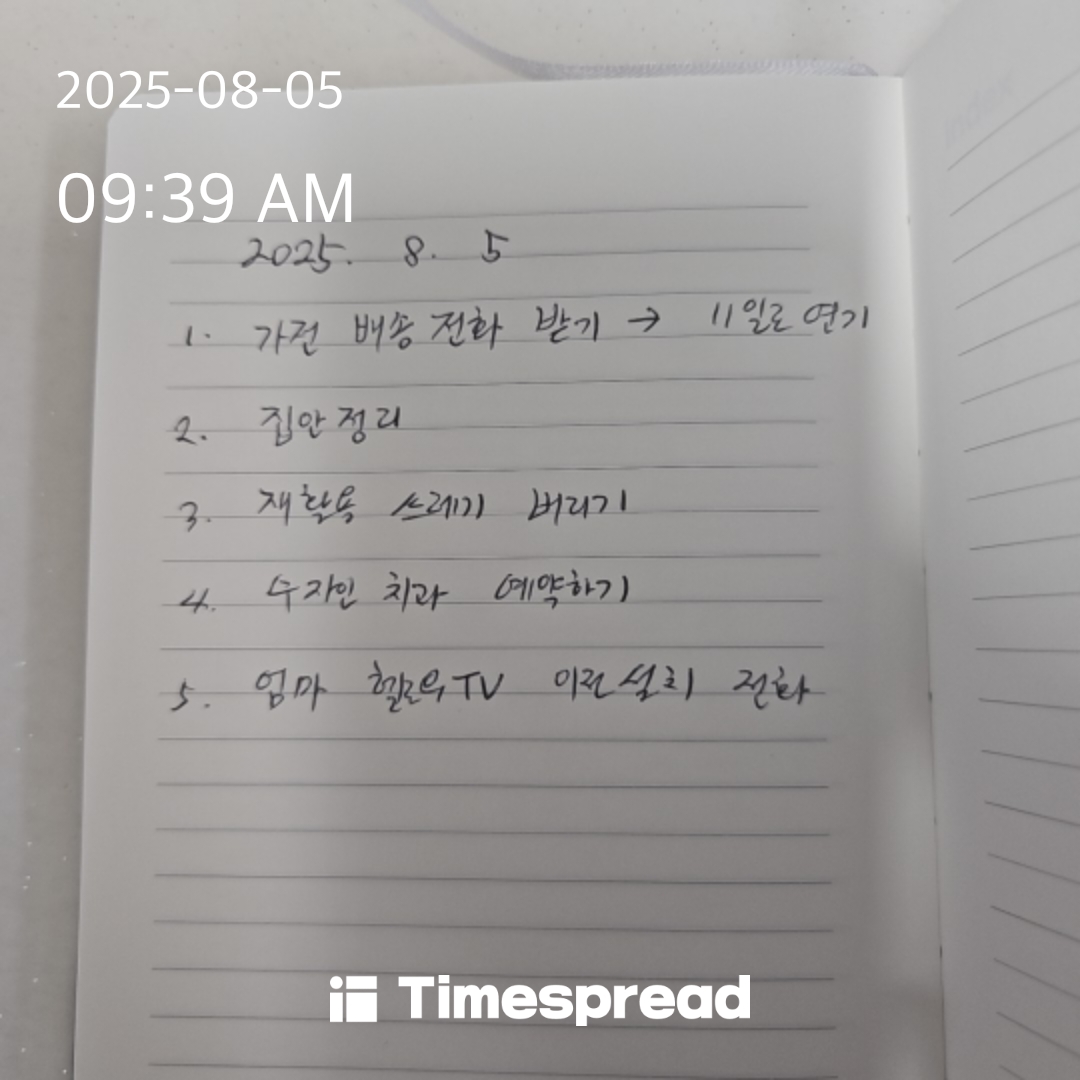 2025-08-05
09:39 AM
2025. 8. 5
1. 가전 배송 전화 받기 → 11일로 연기
2. 집안정리
3. 재활용 쓰레기 버리기
4. 수자인 치과 예약하기
5. 엄마 헬로우TV 이전설치 전화
Timespread